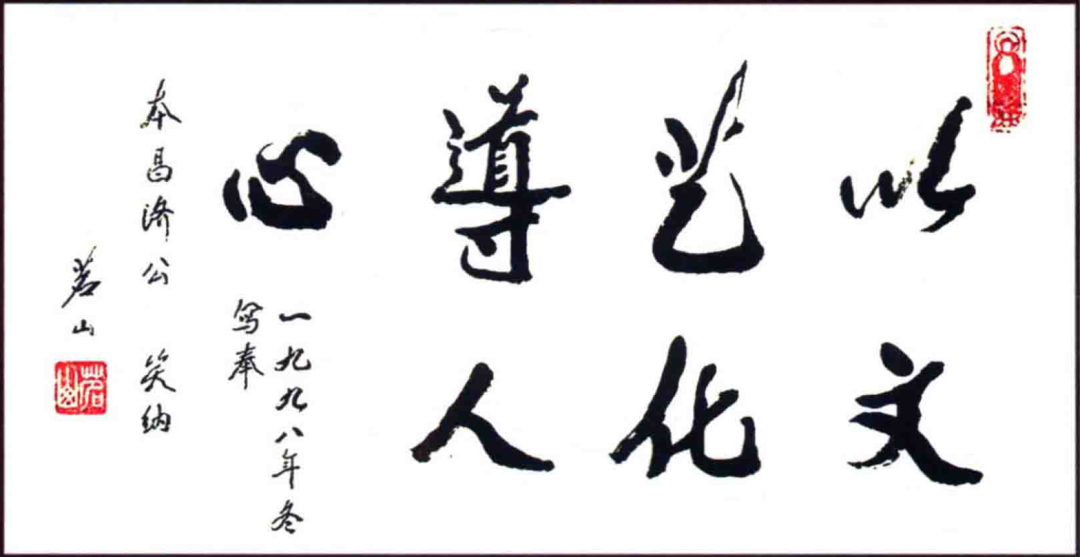 以文
艺化
导人
心
一九九八年冬
写奉
本昌济公 笑纳
茗山
茗山